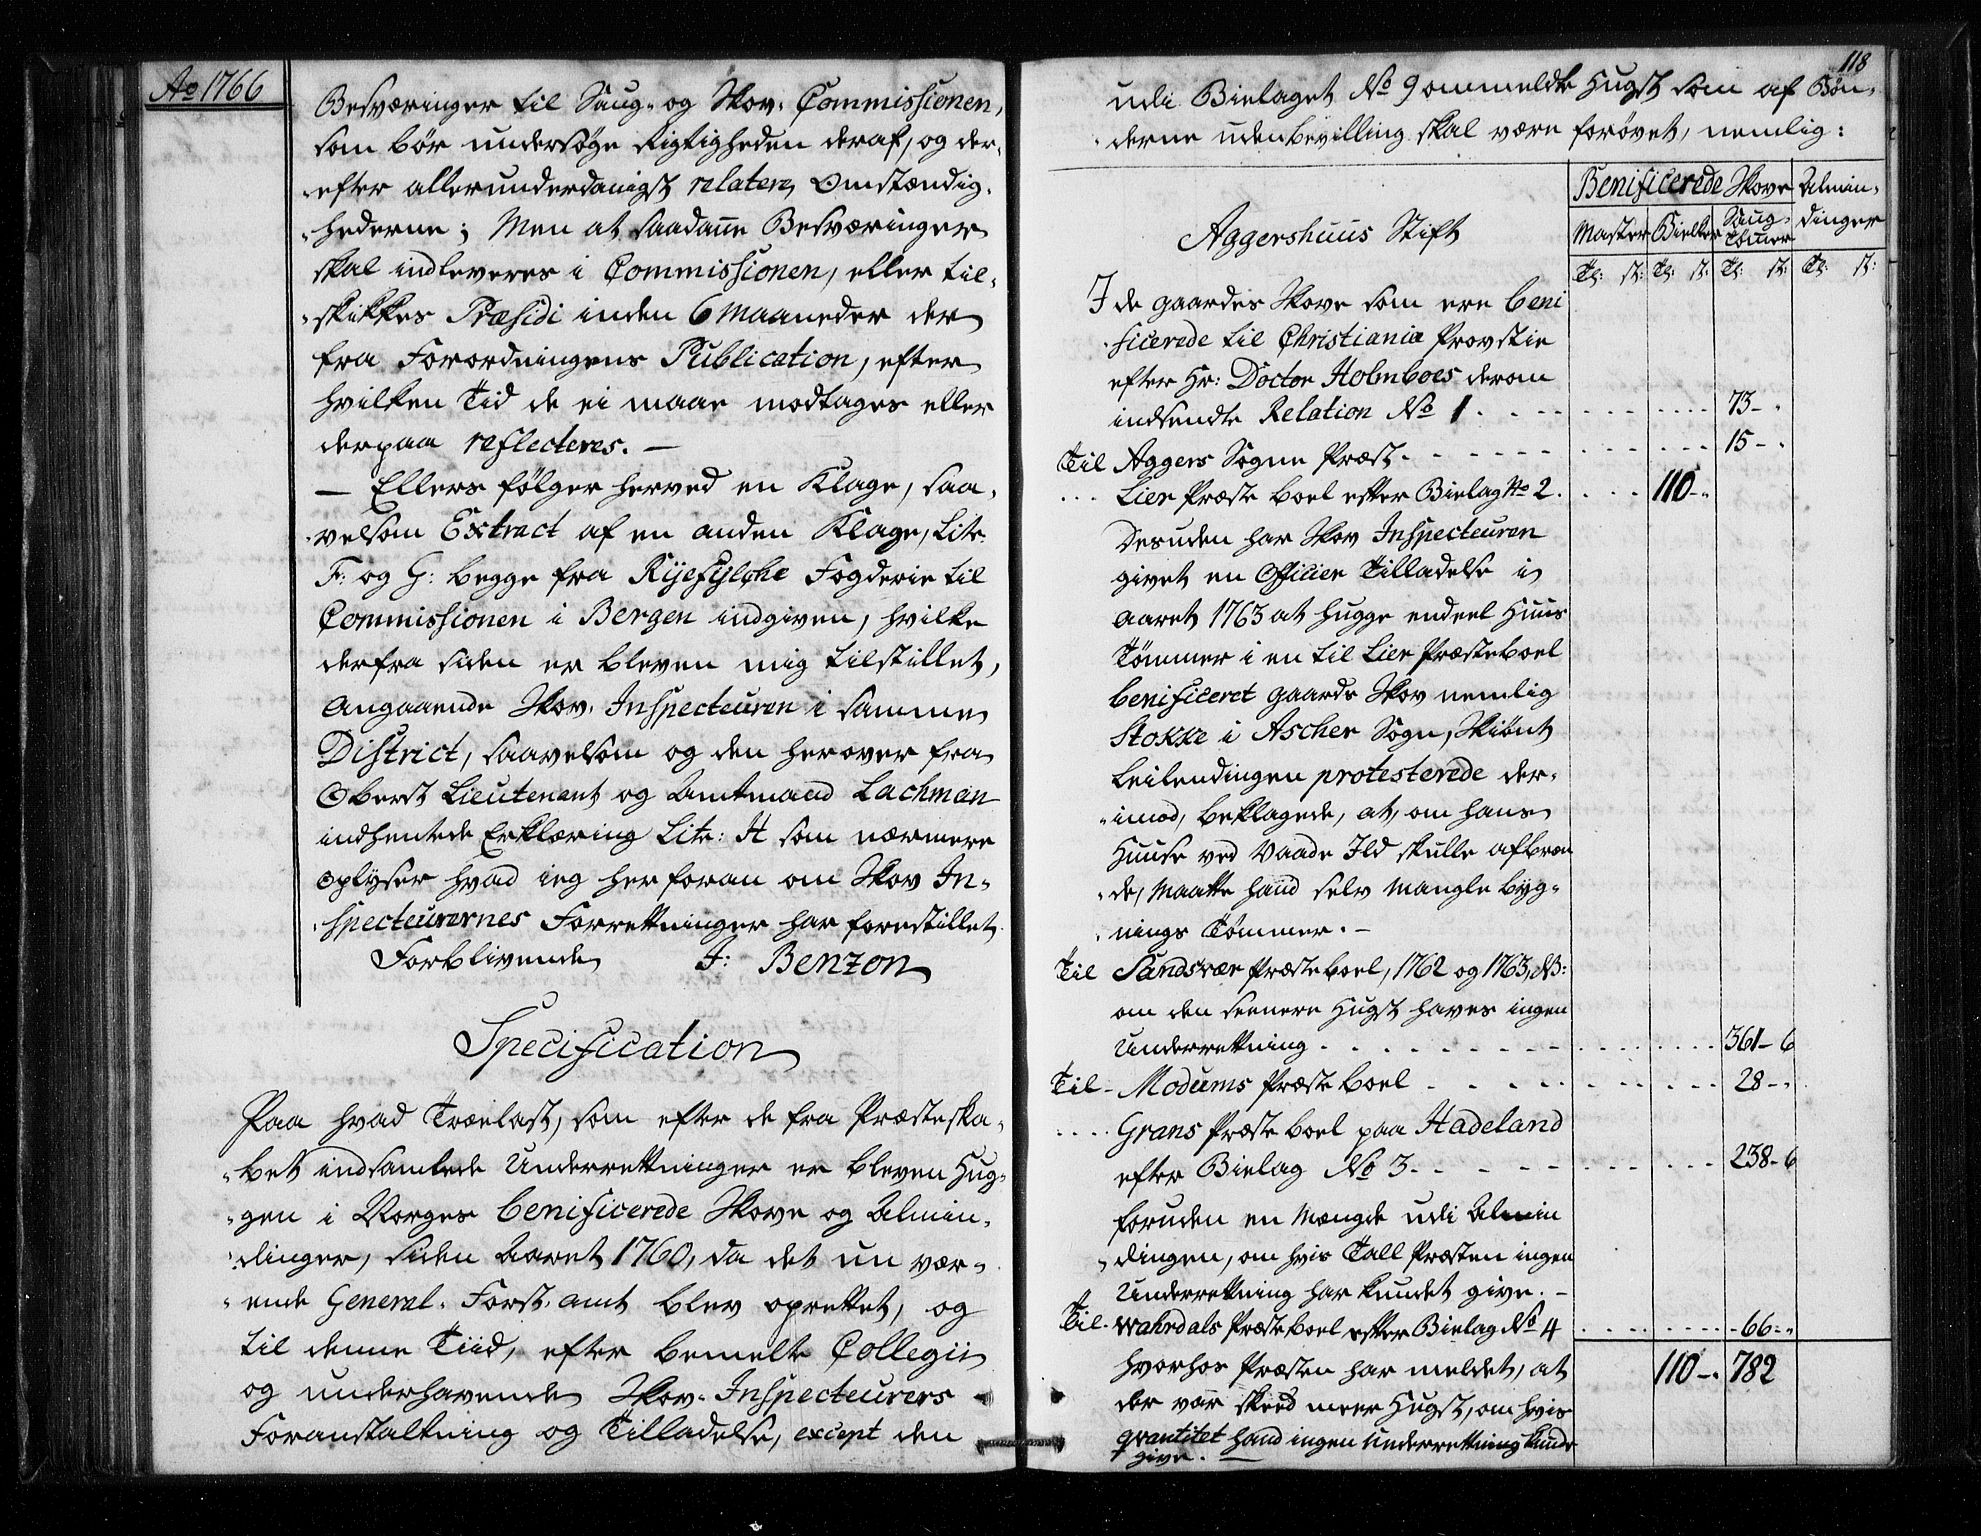 Ao 1766
Besværinger til Saug- og Skov-Commissionen,
som bör undersöge Rigtigheden deraf, og der-
efter allerunderdanigst relatere Omstændig-
hederne; Men at saadañe Besværinger
skal indleveres i Commissionen, eller til-
skikkes Præsidi inden 6 Maaneder der
fra Forordningens Publication, efter
hvilken Tid de ei maae modtages eller
derpaa reflecteres. —
— Ellers følger herved en Klage, saa-
velsom Extract af en anden Klage, Litr.
F: og G: begge fra Ryefylche Fogderie til
Commissionen i Bergen indgiven, hvilke
derfra siden er bleven mig tilstillet,
Angaaende Skov-Inspecteuren i samme
District, saavelsom og den herover fra
Oberst Lieutenant og Amtmand Lachman
indhentede Erklæring Litr: H som nærmere
oplyser hvad ieg her foran om Skov In-
specteurernes Forretninger har forestillet.
Forblivende J: Benzon
Specification
Paa hvad Trælast, som efter de fra Præsteska-
bet indsamlede Underretninger er bleven hug-
gen i Norges benificerede Skove og Almin-
dinger, siden Aaret 1760, da det nu vær-
ende General-Forst-amt blev oprettet, og
til denne Tiid, efter bemelte Collegii
og underhavende Skov-Inspecteurers
Foranstaltning og Tilladelse, except den
118
udi Bielaget No 9 ommeldte Hugst som af Bøn-
derne uden bevilling skal være forøvet, nemlig:
Benificerede Skove Almin-
dinger
Master Bielker Saug-Tømer
Tl: st: Tl: st: Tl: st: Tl: st:
Aggershuus Stift
I de gaardes Skove som ere beni
ficerede til Christiania Provstie
efter Hr: Doctor Holmboes derom
indsendte Relation No 1. 73-"
Til Aggers Sogne Præst. 15-"
... Lier Præste boel efter Bielag No 2. 110-"
Desuden har Skov Inspecteuren
givet en Officier Tilladelse i
Aaret 1763 at hugge endeel Huus
Tømmer i en til Lier Præsteboel
benificeret gaards Skov nemlig
Stokke i Ascher Sogn, Skiønt
Leilendingen protesterede der-
imod, beklagede, at, om hans
Huuse ved Vaade Ild skulle afbræn
de, maatte hand selv mangle byg-
nings Tømmer. —
Til Sandsvær Præsteboel, 1762 og 1763, NB:
om den seenere Hugst haves ingen
Underretning. 361-6
Til - Modums Præste boel 28-"
.... Grans Præste boel paa Hadeland
efter Bielag No 3. 238-6
foruden en Mængde udi Almin
dingen, om hvis Tall Præsten ingen
Underretning har kundet give. -
Til. Wahrdals Præsteboel efter Bielag No 4 66-"
hvorhos Præsten har meldet, at 110-" 782
der var skeed meer Hugst, om hvis
qvantitet hand ingen Underretning kunde
give. —